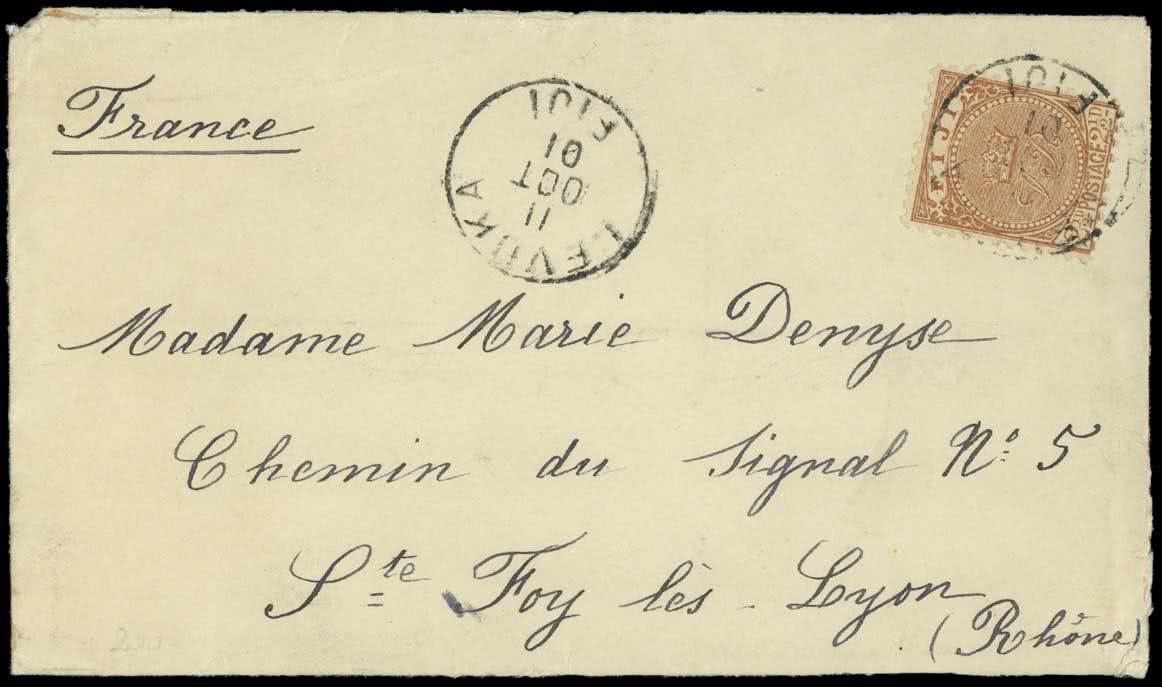 France
LEVUKA
11
OCT
01
FIJI
FIJI
POSTAGE 2½D
VR
FIJI
01
Madame Marie Denyse
Chemin du Signal No. 5
Ste Foy lès-Lyon
(Rhône)
200